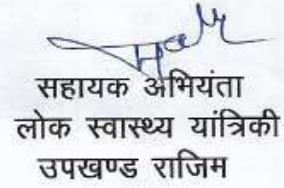 सहायक अभियंता
लोक स्वास्थ्य यांत्रिकी
उपखण्ड राजिम